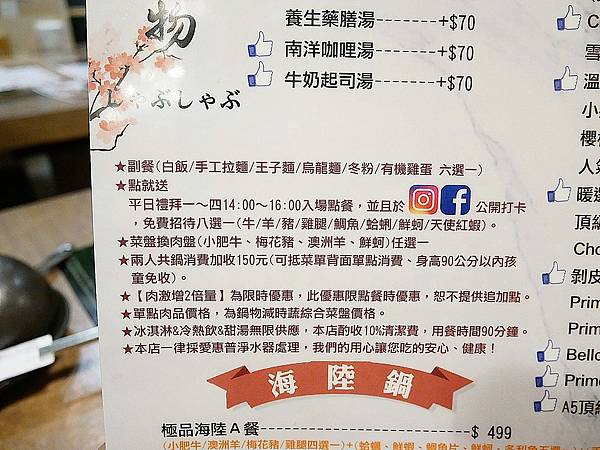 物
しゃぶしゃぶ
養生藥膳湯-------+$70
南洋咖哩湯-------+$70
牛奶起司湯-------+$70
★副餐(白飯/手工拉麵/王子麵/烏龍麵/冬粉/有機雞蛋 六選一)
★點就送
平日禮拜一～四14:00～16:00入場點餐，並且於 公開打卡
，免費招待八選一(牛/羊/豬/雞腿/鯛魚/蛤蜊/鮮蚵/天使紅蝦)。
★菜盤換肉盤(小肥牛、梅花豬、澳洲羊、鮮蚵)任選一
★兩人共鍋消費加收150元(可抵菜單背面單點消費、身高90公分以內孩
童免收)。
★【肉激增2倍量】為限時優惠，此優惠限點餐時優惠，恕不提供追加點。
★單點肉品價格，為鍋物減時蔬綜合菜盤價格。
★冰淇淋&冷熱飲&甜湯無限供應，本店酌收10%清潔費，用餐時間90分鐘。
★本店一律採愛惠普淨水器處理，我們的用心讓您吃的安心、健康！
海陸鍋
極品海陸A餐-----------------------$ 499
(小肥牛/澳洲羊/梅花豬/雞腿四選一)+(蛤蠣、鮮蝦、鯛魚片、鮮蚵、
C
雪
溫
小
櫻
人
暖
頂級
Cho
剝皮
Prim
Prim
Bello
Prime
A5頂級